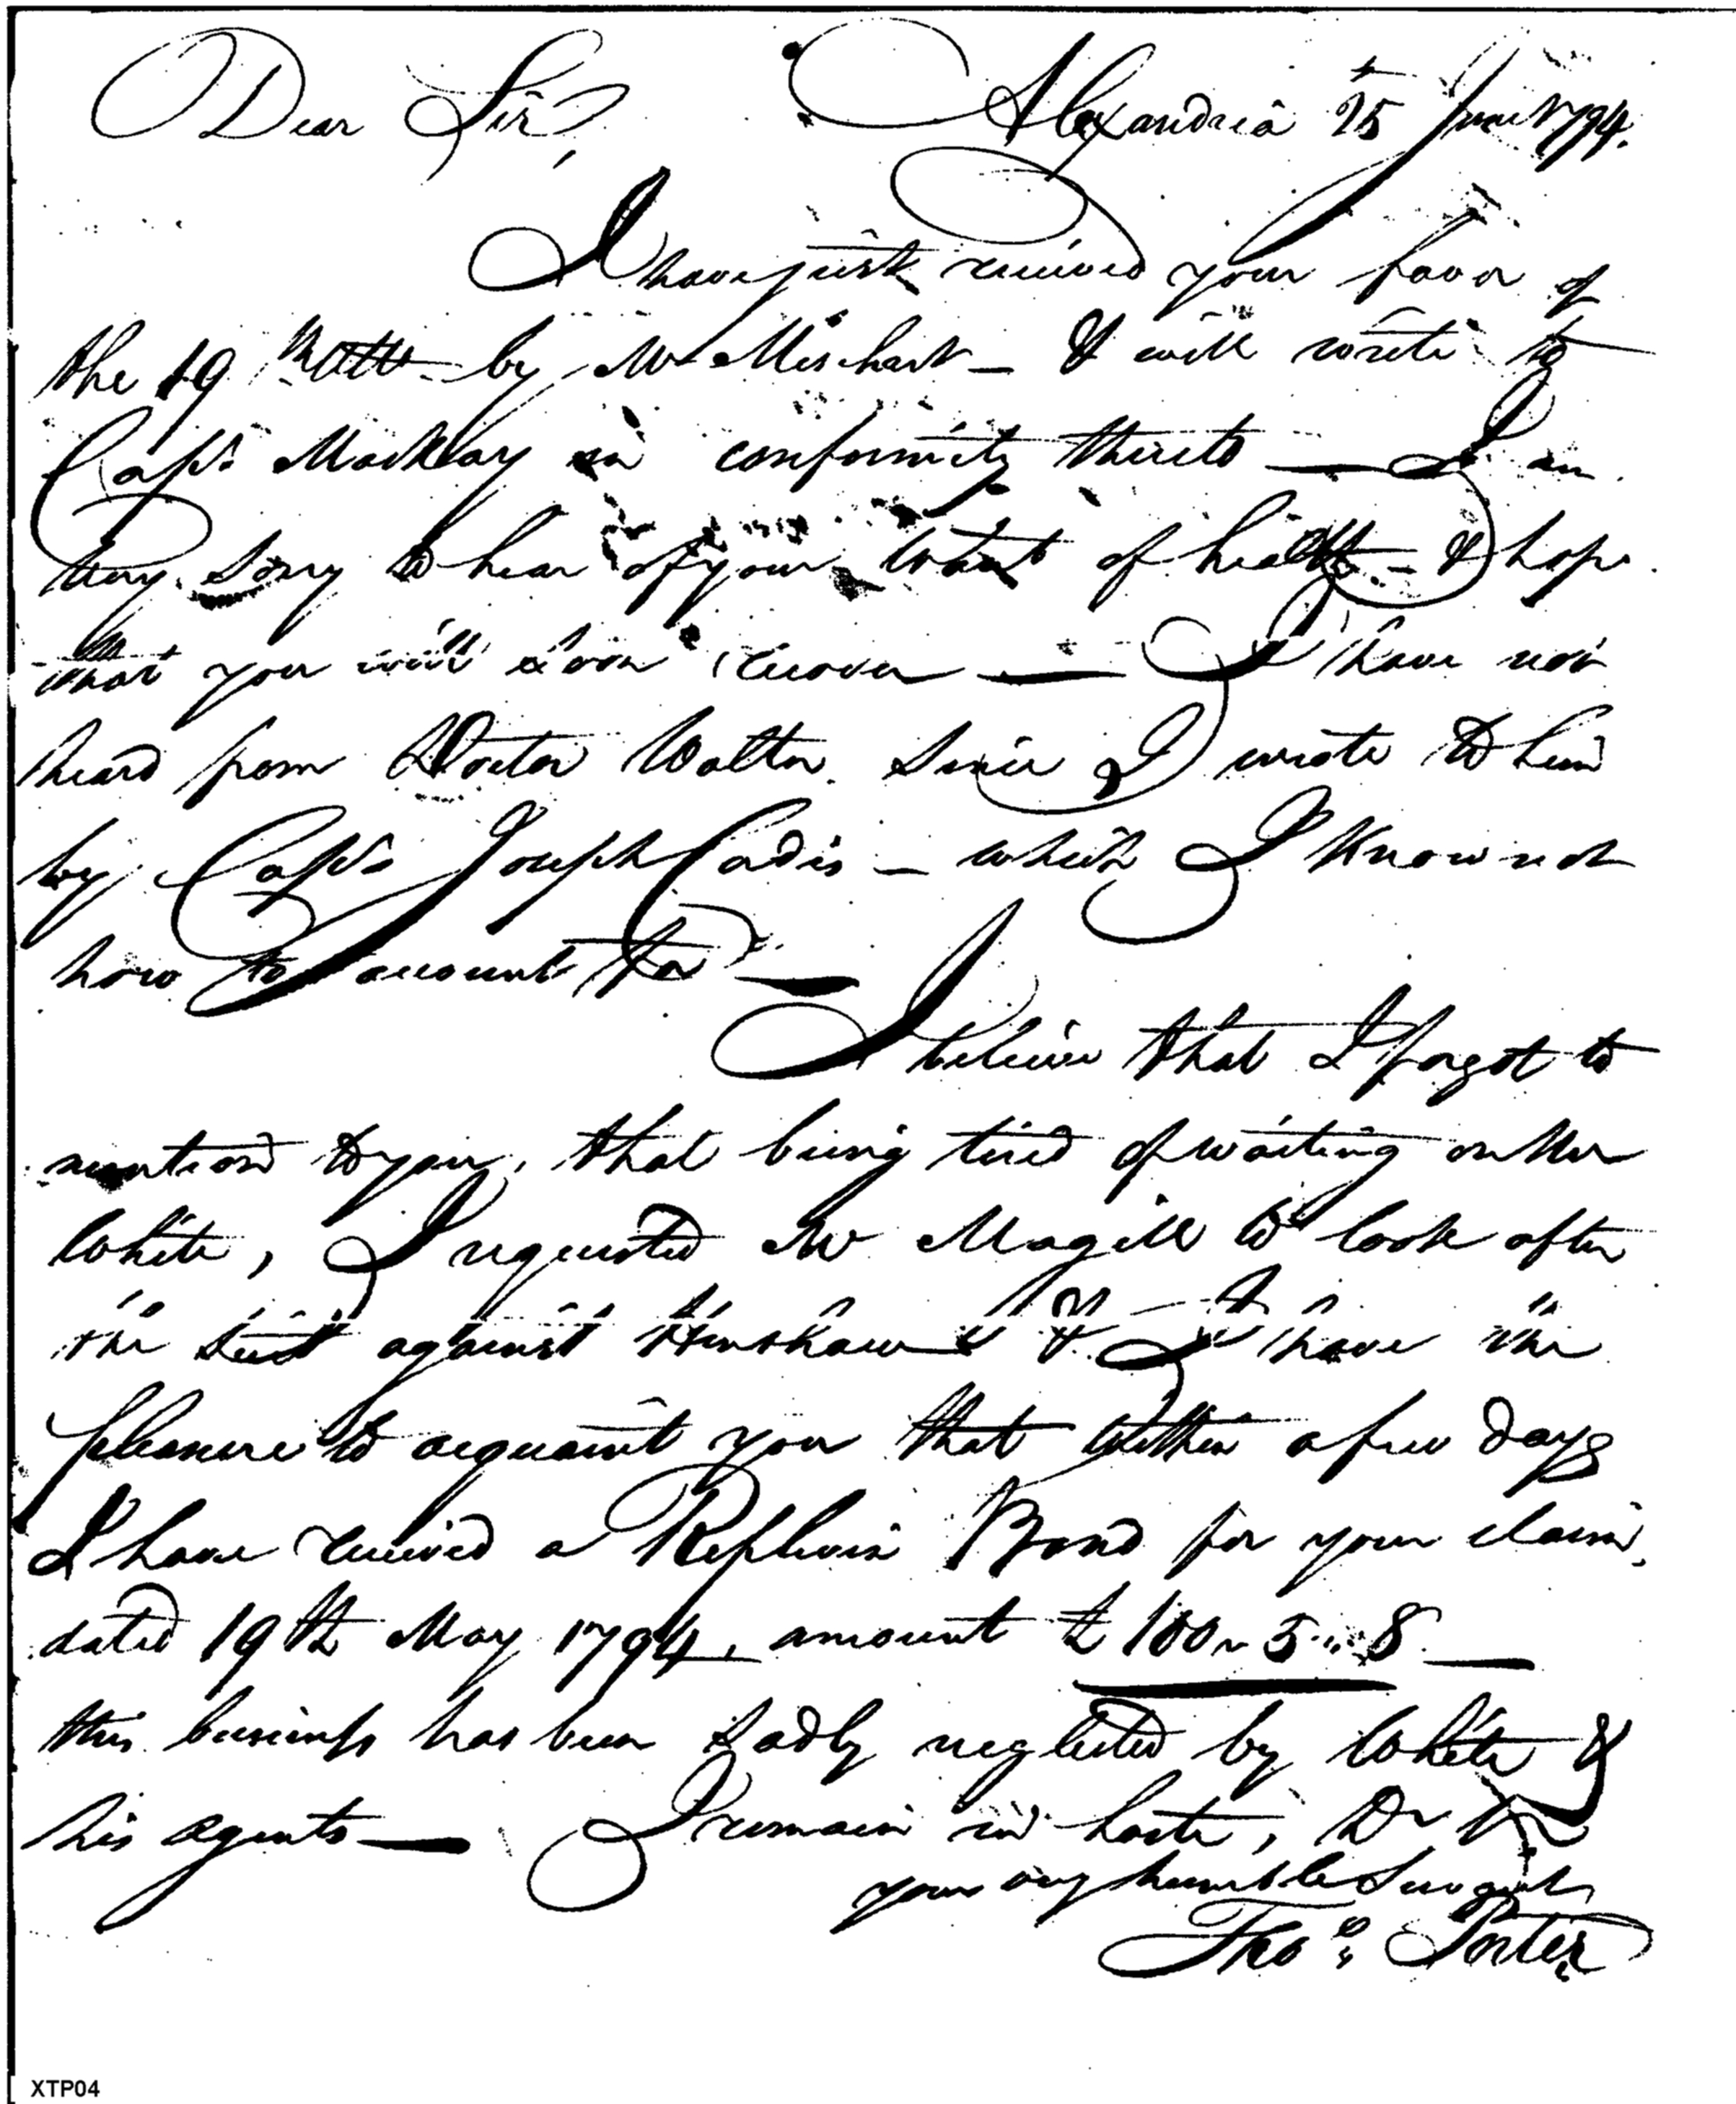 Dear Sir, Alexandria 25 June 1794.
I have just received your favor of
the 19th by Mr Mischart — & will write to
Capt. Mackay in conformity thereto — I am
very sorry to hear of your want of health — & hope
that you will soon recover — I have not
heard from Doctor Wolter since I wrote to him
by Capt Joseph Cadis — which I know not
how to account for —
I believe that I forgot to
mention to you, that being tired of waiting on Mr
White, I requested Mr Magill to look after
the suit against Henshaw & I have the
pleasure to acquaint you that within a few days
I have received a Replevin Bond for your claim,
dated 19th May 1794, amount £ 100 " 5 " 8 —
this business has been sadly neglected by White &
his agents — I remain in haste, Dr Sir
your very humble Servant
Thos. Porter
XTP04